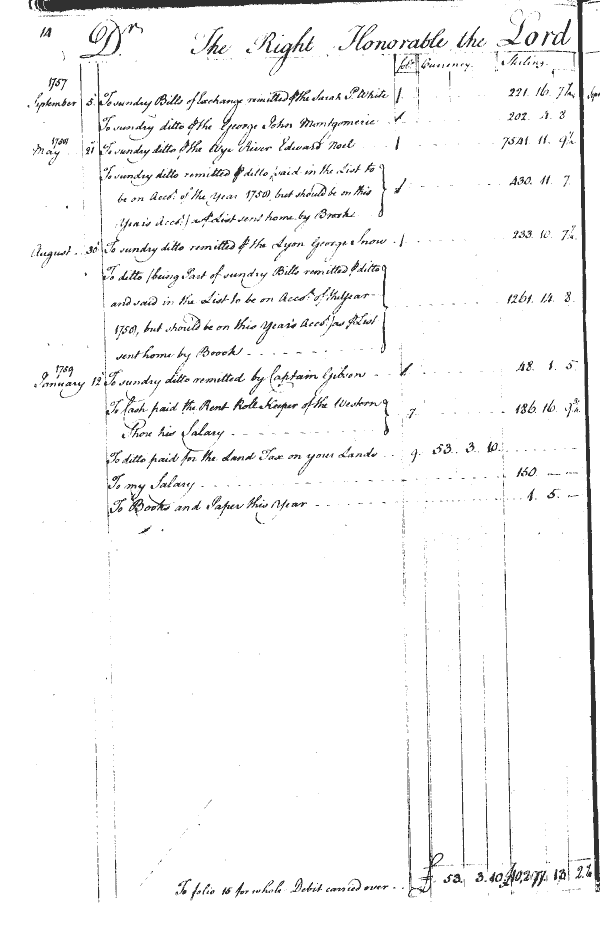 14 Dr. The Right Honorable the Lord
fol. Currency Sterling
1757
September 5 To sundry Bills of Exchange remitted ⅌ the Sarah P. White 1 221. 16. 7½
To sundry ditto ⅌ the George John Montgomerie 1 202. 4. 8
1758
May 21 To sundry ditto ⅌ the Wye River Edward Noel 1 7541. 11. 9½
To sundry ditto remitted ⅌ ditto (said in the List to
be on Acct. of the Year 1758, but should be on this 1 430. 11. 7
Year's Acct.) as ⅌ List sent home by Brook
August 30 To sundry ditto remitted ⅌ the Lyon George Snow 1 233. 10. 7½
To ditto (being Part of sundry Bills remitted ⅌ ditto
and said in the List to be on Acct. of the Year 1261. 14. 8
1758, but should be on this Year's Acct.) as ⅌ List
sent home by Brook
1759
January 12 To sundry ditto remitted by Captain Gibson 1 48. 1. 5
To Cash paid the Rent Roll Keeper of the Western 7 186. 16. 9¾
Shore his Salary
To ditto paid for the Land Tax on your Lands 9 53. 3. 10
To my Salary 150 — —
To Books and Paper this Year 1. 5. —
To folio 15 for whole Debit carried over £ 53. 3. 10 £10,277. 13. 2¼